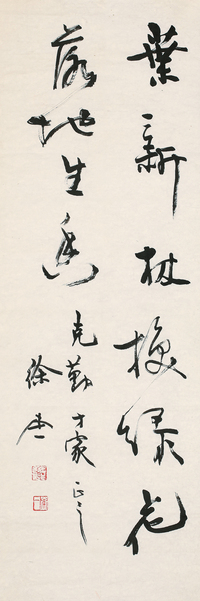 葉新枝換綠花
落地生香
克勤方家正之
徐